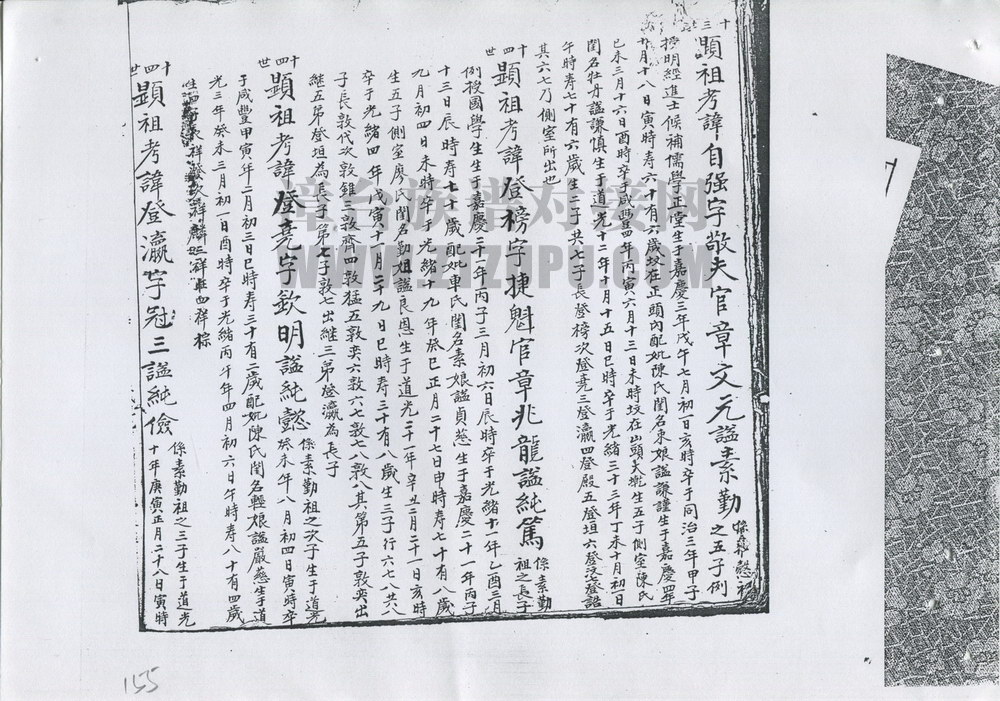 十三世
顕祖考諱自强字敬夫官章文元謚素勤
之五子例
授明經進士候補儒學正堂生于嘉慶三年戊午七月初一日亥時卒于同治三年甲子
九月十八日寅時寿六十有六歲坟在正頭內配妣陳氏閨名束娘謚謙謹生于嘉慶四年
己未三月十六日酉時卒于咸豐四年丙寅六月十三日未時坟在山頭夫 生五子側室陳氏
閨名牡丹謚謙慎生于道光十二年十月十五日巳時卒于光緒三十三年丁未十月初一日
午時寿七十有六歲生二子共七子長登榜次登尭三登瀛四登殿五登垣六登 登諮
其六七乃側室所出也
十四世
顕祖考諱登榜字捷魁官章兆龍謚純篤
係素勤
祖之長子
例授國學生生于嘉慶二十一年丙子三月初六日辰時卒于光緒十一年乙酉三月
十三日辰時寿七十歲配妣車氏閨名素娘謚貞慈生于嘉慶二十一年丙子
九月初四日未時卒于光緒十九年癸巳正月二十七日申時寿七十有八歲
生五子側室廖氏閨名勤姐謚良恩生于道光二十一年辛丑二月二十一日亥時
卒于光緒四年戊寅十一月二十九日巳時寿三十有八歲生三子行六七八共八
子長敦代次敦錐三敦齊四敦猛五敦奕六敦六七敦七八敦八其第五子敦奕出
継五弟登垣為長子第七子敦七出継三弟登瀛為長子
十四世
顕祖考諱登尭字欽明謚純懿
係素勤祖之次子生于道光
癸未年八月初四日寅時卒
于咸豐甲寅年二月初三日巳時寿三十有二歲配妣陳氏閨名輕娘謚嚴慈生于道
光三年癸未三月初一日酉時卒于光緒丙午年四月初六日午時寿八十有四歲
祥 次祥麟三祥 四祥棕
十四世
顕祖考諱登瀛字冠三謚純儉
係素勤祖之三子生于道光
十年庚寅正月二十八日寅時
155
漳台族谱对接网
WWW.ZZZUPU.COM
7